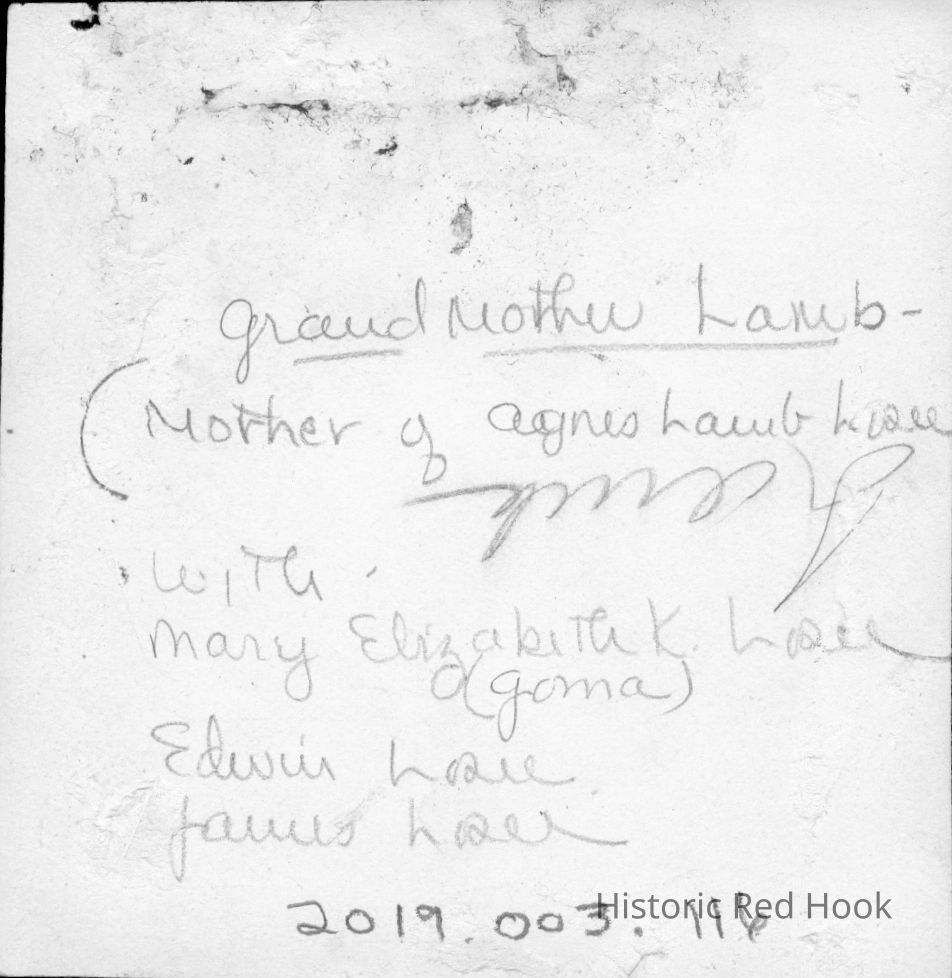 Grand Mother Lamb-
(Mother of Agnes Lamb Losee
With -
Mary Elizabeth K. Losee
(Goma)
Edwin Losee
James Losee
2019.003.116
Historic Red Hook